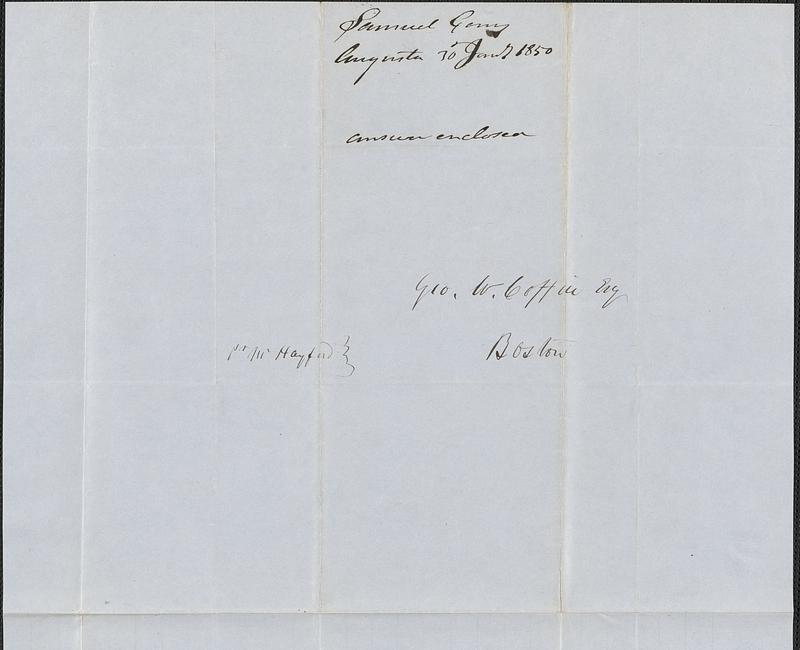 Samuel Gerry
Augusta 30 Jany 1850
answer enclosed
Geo. W. Coffin Esq
Boston
pr Mr Hayford }